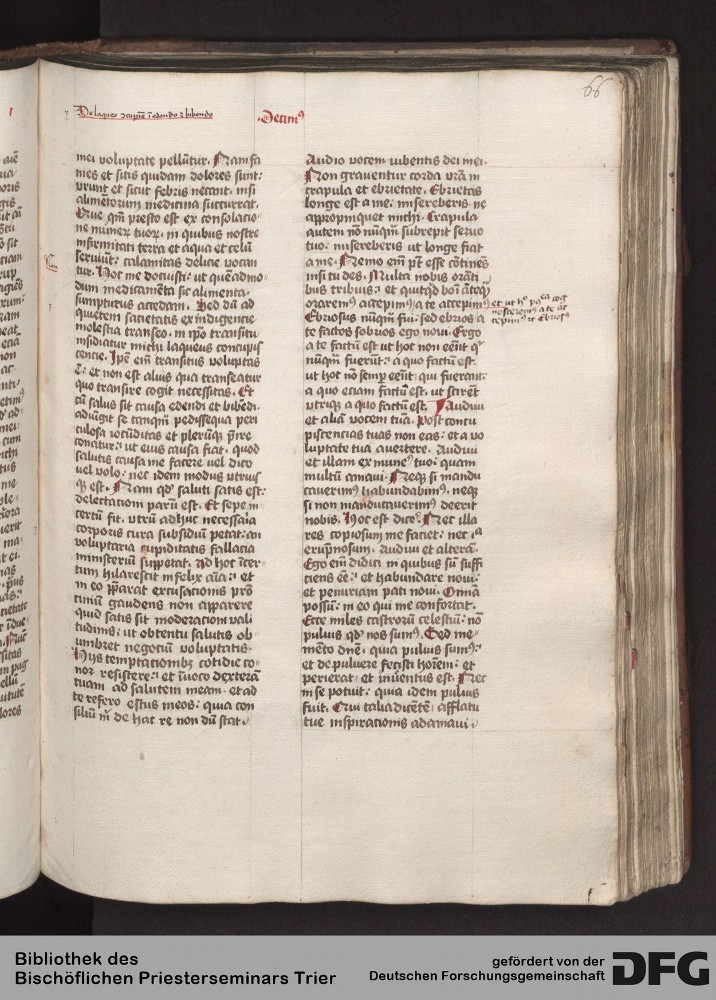 66
De laqueo ɔcupīe ī edendo ⁊ bibendo
·Decimꝰ
mei voluptate pellūtur. Nam fa
mes et sitis quidam dolores sunt:
vrunt et sicut febris necant. nisi
alimētorum medicina succurrat.
Que qm̄ presto est ex consolatio
ne munerꝝ tuoꝝ. in quibus nostre
infirmitati terra et aqua et celū
seruiūt: calamitas delicie vocan
tur. Hoc me docuisti: ut quēadmo
dum medicamēta sic alimenta
sumpturus accedam. Sed dū ad
quietem sacietatis ex indigencie
molestia transeo. in ip̄o transitu
insidiatur michi laqueus concupis
cencie. Ip̄e em̄ transitus voluptas
ē: et non est alius qua transeatur
quo transire cogit necessitas. Et
cū salus sit causa edendi et bibēdi.
adiūgit se tanqm̄ pedissequa peri
culosa iocūditas et plerūqꝫ p̄ire
conatur: ut eius causa fiat. quod
salutis causa me facere vel dico
vel volo: nec idem modus utrius
qꝫ est. Nam qd̓ saluti satis est:
delectacioni parū est. Et sepe in
certū fit. utrū adhuc necessaīa
corporis cura subsidiū petat: an
voluptaria cupiditatis fallacia
ministeriū suppetat. Ad hoc īcer
tum hilarescit infelix aīa: et
in eo p̄parat excusacionis prō
cinium gaudens non apparere
quid satis sit moderacioni vali
tudinis: ut obtentu salutis ob
umbret negociū voluptatis
Hijs temptationibꝫ cotidie co
nor resistere: et īuoco dexterā
tuam ad salutem meam. et ad
te refero estus meos: quia con
siliū m̄ de hac re non dū stat.
Audio vocem iubentis dei mei.
Non grauentur corda vr̄a in
crapula et ebrietate. Ebrietas
longe est a me: misereberis ne
appropinquet michi. Crapula
autem nō nūqm̄ subrepit seruo
tuo: misereberis ut longe fiat
a me. Nemo em̄ pt̄ esse cōtinēs
nisi tu des. Multa nobis orāti
bus tribuis: et quitqd bonī āteqꝫ
oraremꝰ accepimꝰ a te accepimꝰ
et ut hͦ
Ebriosus nūqm̄ fui: sed ebrios a
te factos sobrios ego noui. Ergo
a te factū est ut hot non eēnt qͥ
nūqm̄ fuerūt: a quo factū est.
ut hot nō semp eēnt: qui fuerant:
a quo eciam factū est. ut scirēt
utriqꝫ a quo factū est. Audiui
et aliā vocem tuā. Post concu
piscencias tuas non eas: et a vo
luptate tua auertere. Audiui
et illam ex munē tuo: quam
multū amaui. Neqꝫ si mandu
cauerimꝰ habundabimꝰ. neqꝫ
si non manducauerimꝰ deerit
nobis. Hoc est dicē. Nec illa
res copiosum me faciet: nec iᵃ
erūpnosum. Audiui et alterā.
Ego em̄ didici in quibus sū suffi
ciens eē: et habundare noui:
et penuriam pati noui. Omīa
possū: in eo qui me confortat.
Ecce miles castrorū celestiū: nō
puluis qd̓ nos sumꝰ. Sed me
mēto dn̄e: quia puluis sumꝰ:
et de puluere fecisti hoīem: et
perierat et inuentus est. Nec
in se potuit: quia idem puluis
fuit. Cui talia dicētē afflatu
tue inspiracionis adamaui.
Bibliothek des
Bischöflichen Priesterseminars Trier
gefördert von der
Deutschen Forschungsgemeinschaft
DFG